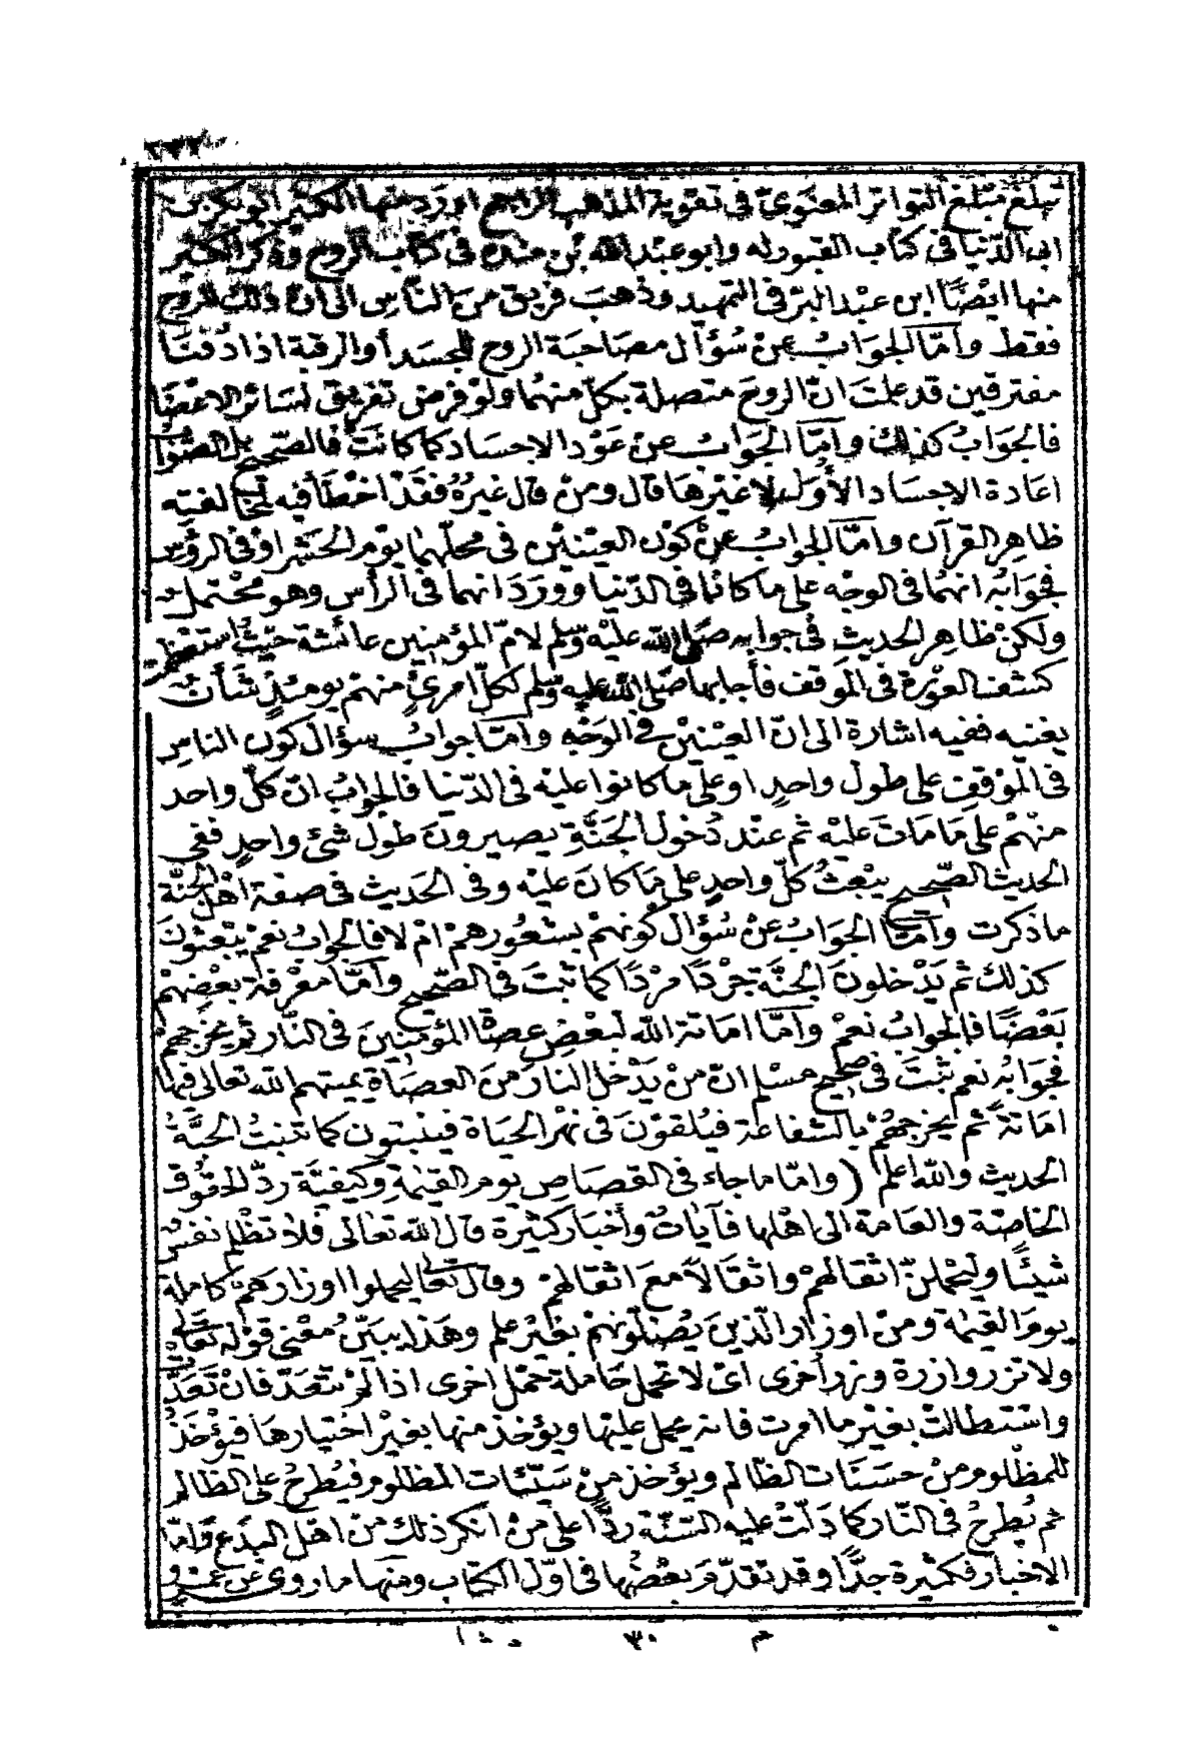 تبلغ مبلغ التواتر المعنوى فى تقوية المذهب الراجح اورد منها الكثير ابو بكر بن
ابى الدّنيا فى كتاب القبور له وابو عبد الله بن منده فى كتاب الروح وذكر الكثير
منها ايضًا ابن عبد البرّ فى التمهيد وذهب فريق من النّاس الى ان ذلك للروح
فقط وأمّا الجواب عن سُؤال مصاحبة الروح للجسد أو الرقبة اذا دفنا
مفترقين قد علمت انّ الروح متصلة بكلّ منهما ولو فرض تفريق لسائر الاعضا
فالجوابُ كذلك وأمّا الجوابُ عن عَوْد الاجساد كما كانت فالصّحيح بل الصّواب
اعادة الاجساد الأوَل لا غيرها قال ومن قال غيرهُ فقد اخطأ فيه لمخالفته
ظاهِر القرآن وأمّا الجوابُ عن كون العينين فى محلّهما يوم الحشر او فى الرؤس
فجوابُه انهما فى الوجه على ما كانا فى الدّنيا وورد انهما فى الرأس وهو محتمل
ولكن ظاهر الحديث فى جوابه صلى الله عليه وسلم لامّ المؤمنين عائشة حيث استعظمت
كشف العورة فى الموقف فأجابها صلى الله عليه وسلم لكلّ امرئٍ منهم يومئذٍ شأن
يغنيه ففيه اشارة الى انّ العينين فى الوجه وأمّا جوابُ سؤال كون الناس
فى الموقف على طول واحدٍ او على ما كانوا عليه فى الدّنيا فالجوابُ انّ كلّ واحد
منهم على ما مات عليه ثم عند دُخول الجنّة يصيرون طول شئ واحدٍ ففى
الحديث الصّحيح يبعثُ كلّ واحدٍ على ما كان عليه وفى الحديث فى صفة أهل الجنّة
ما ذكرت وأمّا الجوابُ عن سُؤال كونهم بشعورهم ام لا فالجوابُ نعم يبعثون
كذلك ثم يدخلون الجنّة جُردًا مردًا كما ثبت فى الصّحيح وأمّا معرفة بعضهم
بعضًا فالجوابُ نعم وأمّا اماتة الله لبعض عصاة المؤمنين فى النّار ثم يخرجهم
فجوابُه نعم ثبت فى صحيح مسلم انّ من يدخل النار من العصاة يميتهم الله تعالى فيها
اماتة ثم يخرجهم بالشفاعة فيُلقون فى نهر الحياة فينبتون كما تنبتُ الحبّة
الحديث والله اعلم ( وامّا ما جاء فى القصاص يوم القيمة وكيفيّة ردّ الحقوق
الخاصّة والعامة الى اهلها فآياتٌ وأخبار كثيرة قال الله تعالى فلا تظلم نفس
شيئًا وليحملنّ اثقالهم واثقالاً مع اثقالهم وقال تعالى ليحملوا اوزارهم كاملة
يوم القيمة ومن اوزار الّذين يُضلّونهم بغير علم وهذا يبيّن معنى قوله تعالى
ولا تزر وازرة وزر أخرى اى لا تحمل حاملة حمل اخرى اذا لم تتعدّ فان تعدّت
واستطالت بغير ما امرت فانه يحمل عليها ويؤخذ منها بغير اختيارها فيؤخذ
للمظلوم من حسنات الظالم ويؤخذ من سيّئات المظلوم فيُطرح على الظالم
ثم يُطرح فى النّار كما دلّت عليه السّنّة ردًّا على من انكر ذلك من اهل البدع وامّا
الاخبار فكثيرة جدًّا وقد تقدّم بعضُها فى اوّل الكتاب ومنها ما روى عن عمرو
م ٣٠